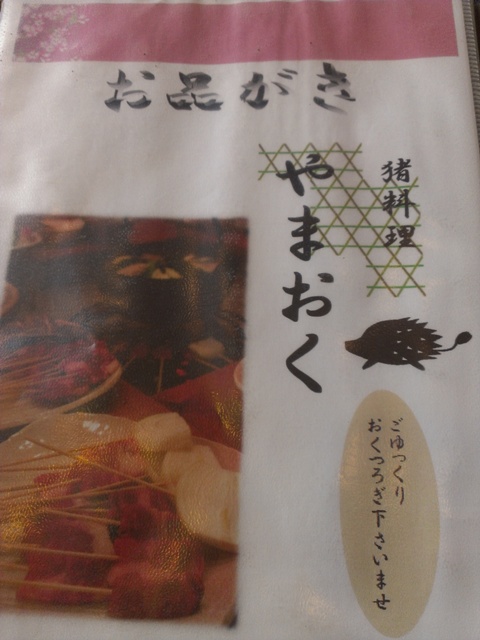 お品がき
猪料理
やまおく
ごゆっくり
おくつろぎ下さいませ